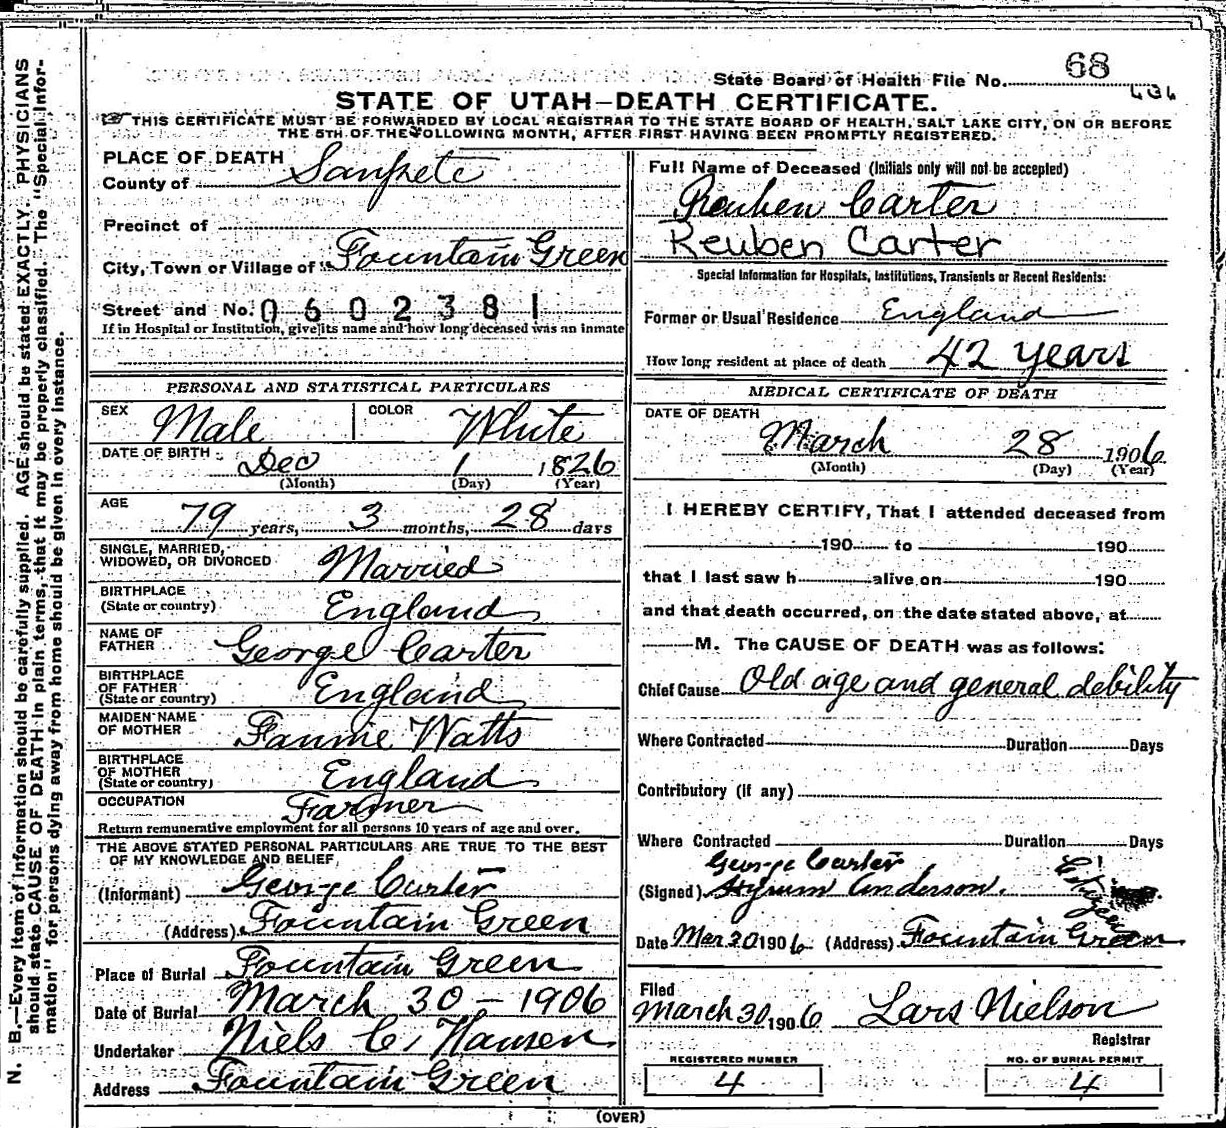 N. B.—Every item of information should be carefully supplied. AGE should be stated EXACTLY. PHYSICIANS
should state CAUSE OF DEATH in plain terms, that it may be properly classified. The "Special Infor-
mation" for persons dying away from home should be given in every instance.
State Board of Health File No. 68
STATE OF UTAH—DEATH CERTIFICATE.
THIS CERTIFICATE MUST BE FORWARDED BY LOCAL REGISTRAR TO THE STATE BOARD OF HEALTH, SALT LAKE CITY, ON OR BEFORE
THE 5TH OF THE FOLLOWING MONTH, AFTER FIRST HAVING BEEN PROMPTLY REGISTERED.
PLACE OF DEATH
County of Sanpete
Precinct of
City, Town or Village of Fountain Green
Street and No. 0602381
If in Hospital or Institution, give its name and how long deceased was an inmate
PERSONAL AND STATISTICAL PARTICULARS
SEX Male COLOR White
DATE OF BIRTH Dec 1 1826
(Month) (Day) (Year)
AGE 79 years, 3 months, 28 days
SINGLE, MARRIED,
WIDOWED, OR DIVORCED Married
BIRTHPLACE
(State or country) England
NAME OF
FATHER George Carter
BIRTHPLACE
OF FATHER
(State or country) England
MAIDEN NAME
OF MOTHER Fannie Watts
BIRTHPLACE
OF MOTHER
(State or country) England
OCCUPATION Farmer
Return remunerative employment for all persons 10 years of age and over.
THE ABOVE STATED PERSONAL PARTICULARS ARE TRUE TO THE BEST
OF MY KNOWLEDGE AND BELIEF
(Informant) George Carter
(Address) Fountain Green
Place of Burial Fountain Green
Date of Burial March 30 - 1906
Undertaker Niels C. Hansen
Address Fountain Green
Full Name of Deceased (Initials only will not be accepted)
Reuben Carter
Reuben Carter
Special Information for Hospitals, Institutions, Transients or Recent Residents:
Former or Usual Residence England
How long resident at place of death 42 years
MEDICAL CERTIFICATE OF DEATH
DATE OF DEATH
March 28 1906
(Month) (Day) (Year)
I HEREBY CERTIFY, That I attended deceased from
190 to 190
that I last saw h alive on 190
and that death occurred, on the date stated above, at
M. The CAUSE OF DEATH was as follows:
Chief Cause Old age and general debility
Where Contracted Duration Days
Contributory (if any)
Where Contracted Duration Days
George Carter
(Signed) Hyrum Anderson. Citizen
Date Mar 30 1906 (Address) Fountain Green
Filed
March 30, 1906 Lars Nielson
Registrar
REGISTERED NUMBER NO. OF BURIAL PERMIT
4 4
(OVER)